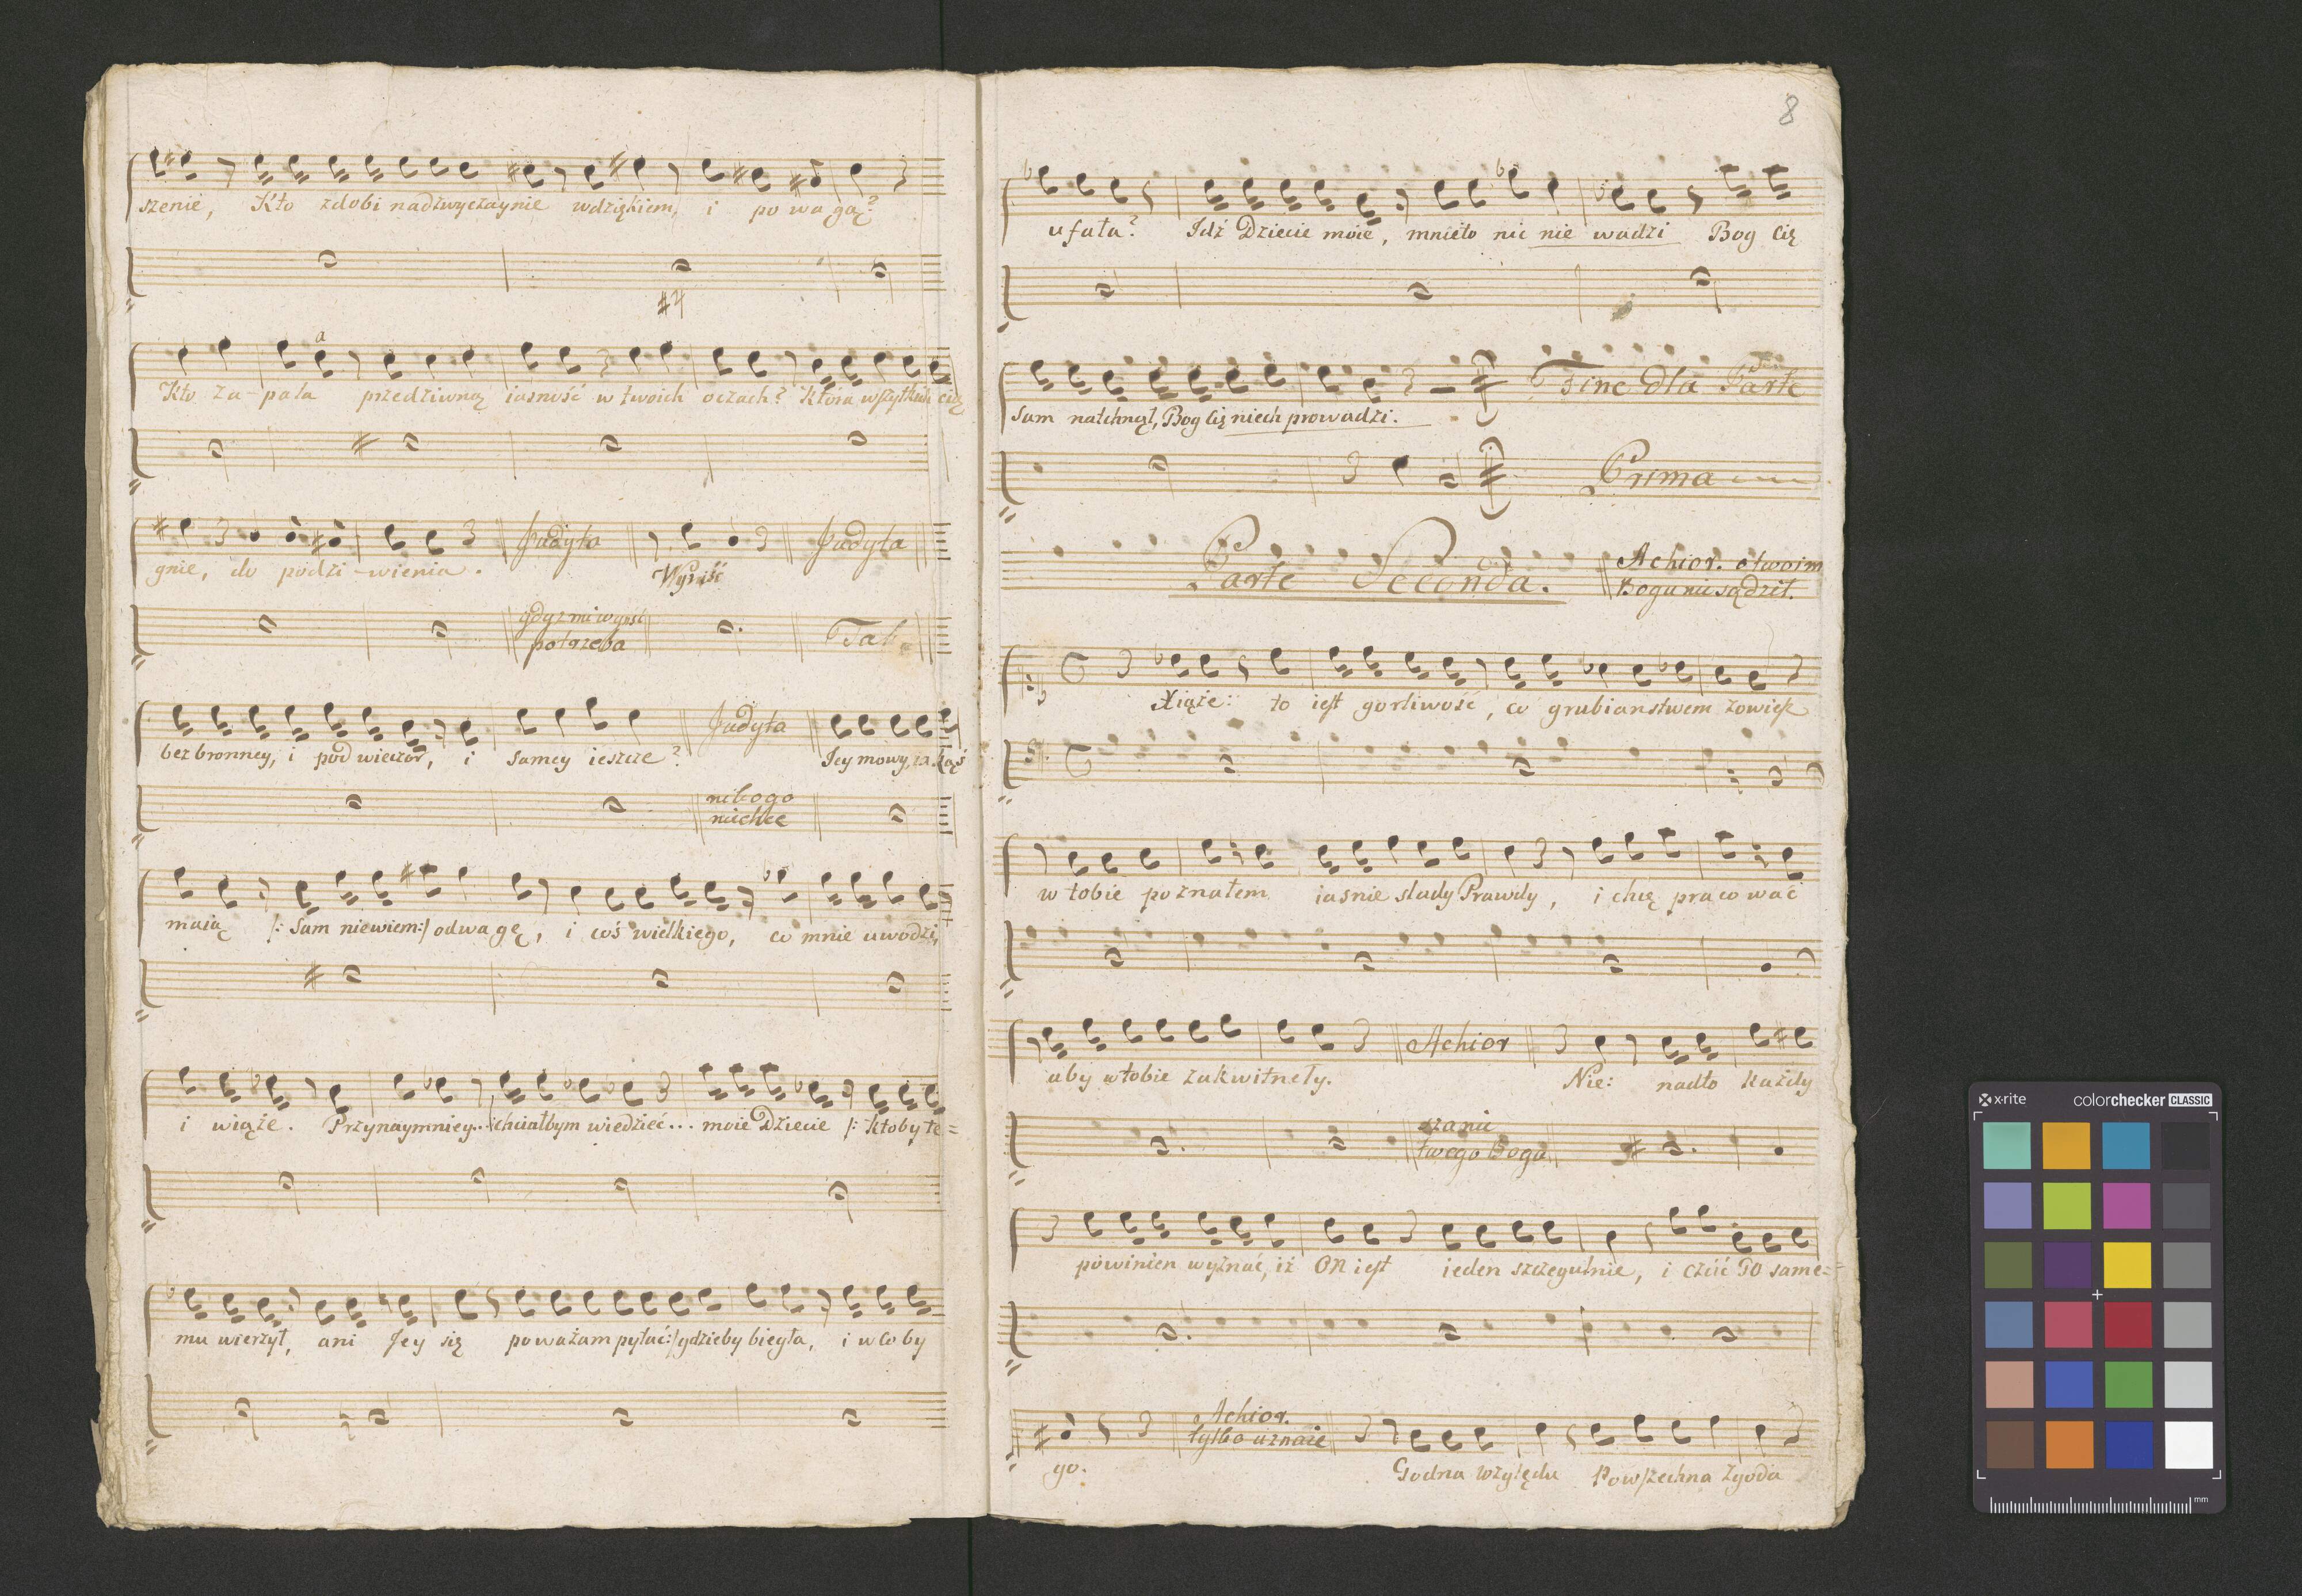 szenie, Kto zdobi nadzwyczaynie wdziękiem, i powagą?
#4
a
Kto za-pala przedziwną iasność w twoich oczach? Która wszytkich cią
gnie, do podzi-wienia. Judyta Wyniść Judyta
gdyż mi wyniść
potrzeba Tak
bezbronney, i pod wieczor, i samey ieszcze? Judyta Jey mowy, iakąś
nikogo
niechce
maią /: Sam niewiem:/ odwagę, i coś wielkiego, co mnie uwodzi,
i wiąże. Przynaymniey... chciałbym wiedzieć... moie Dziecie /: ktoby te=
mu wierzył, ani Jey się poważam pytać:/ gdzieby biegła, i w co by
8
ufała? Idź Dziecie moie, mnie to nic nie wadzi Bog Cię
sam natchnął, Bog Cię niech prowadzi.
Fine dla Parte
Prima
Parte Seconda. Achior. o twoim
Bogu nie sądził.
Xiąże: to iest gorliwość, co grubianstwem zowiesz
w tobie poznałem iasnie slady Prawdy, i chcę pracować
aby w tobie zakwitneły. Achior Nie: nadto każdy
twego Boga
powinien wyznać, iż ON iest ieden szczegulnie, i czcić GO same=
Achior.
go. tylko uznaie Godna względu Powszechna zgoda
x-rite colorchecker CLASSIC
mm